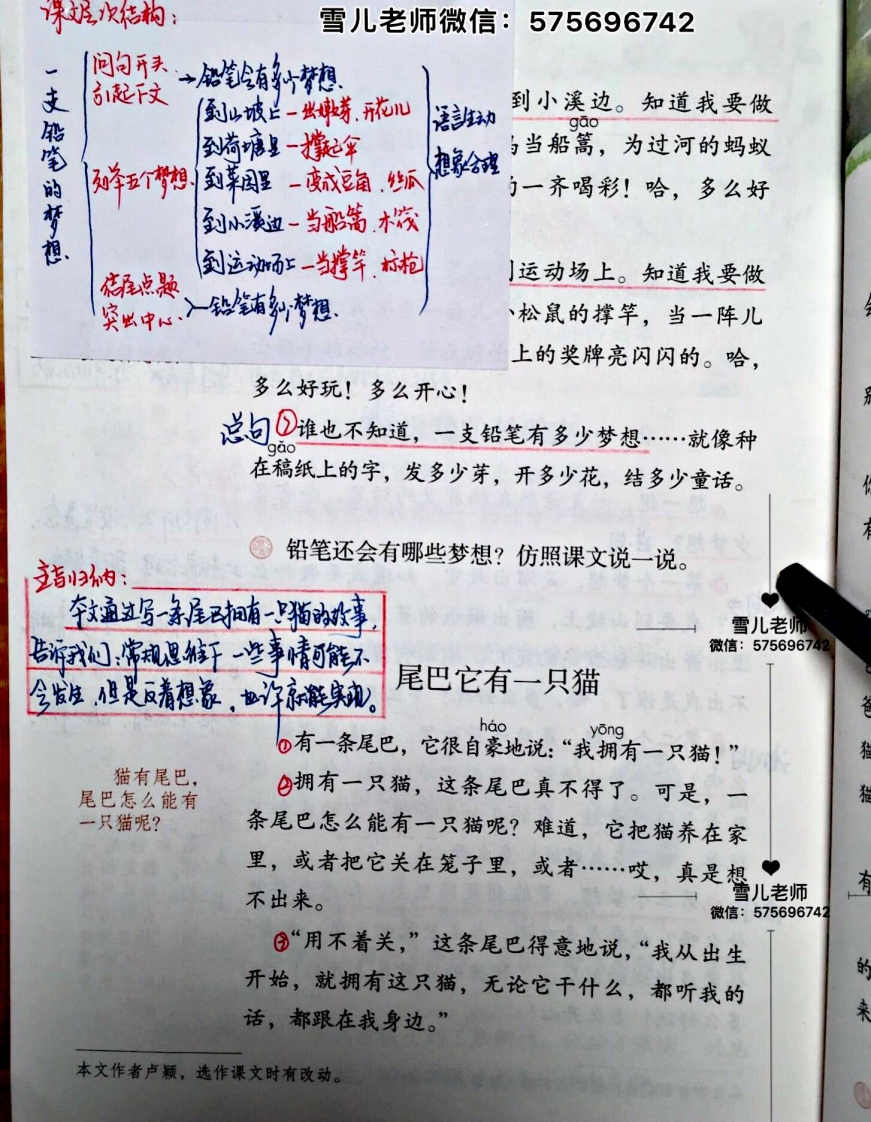 雪儿老师微信：575696742
课文层次结构：
一支铅笔的梦想
问句开头
引起下文
→铅笔会有多少个梦想.
列举五个梦想
到山坡上—出嫩芽、开花儿
到荷塘里—撑起伞
到菜园里—变成豆角、丝瓜
到小溪边—当船篙、木筏
到运动场上—当撑竿、标枪
语言生动
想象合理
结尾点题
突出中心
一铅笔有多少个梦想.
到小溪边。知道我要做
gāo
当船篙，为过河的蚂蚁
一齐喝彩！哈，多么好
运动场上。知道我要做
小松鼠的撑竿，当一阵儿
上的奖牌亮闪闪的。哈，
多么好玩！多么开心！
总句
⑦谁也不知道，一支铅笔有多少梦想……就像种
gǎo
在稿纸上的字，发多少芽，开多少花，结多少童话。
铅笔还会有哪些梦想？仿照课文说一说。
主旨归纳：
本文通过写一条尾巴拥有一只猫的故事，
告诉我们：常规思维下一些事情可能不
会发生，但是反着想象，也许就能实现。
雪儿老师
微信：575696742
尾巴它有一只猫
háo yōng
①有一条尾巴，它很自豪地说：“我拥有一只猫！”
②拥有一只猫，这条尾巴真不得了。可是，一
条尾巴怎么能有一只猫呢？难道，它把猫养在家
里，或者把它关在笼子里，或者……哎，真是想
不出来。
猫有尾巴，
尾巴怎么能有
一只猫呢？
雪儿老师
微信：575696742
③“用不着关，”这条尾巴得意地说，“我从出生
开始，就拥有这只猫，无论它干什么，都听我的
话，都跟在我身边。”
本文作者卢颖，选作课文时有改动。